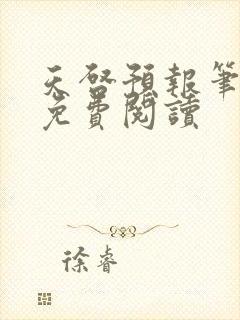 天啓預報筆
免費閱讀
徐睿